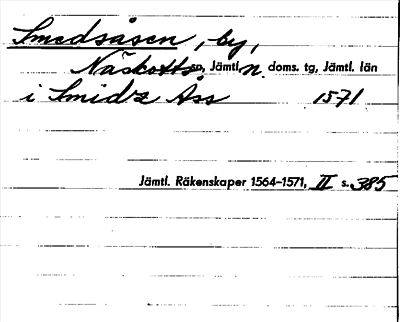 Smedsåsen, by,
Näskotts sn, Jämtl. n. doms. tg, Jämtl. län
i Smidz Åss 1571
Jämtl. Räkenskaper 1564–1571, II s. 385